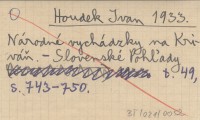 Houdek Ivan 1933.
Národné vychádzky na Kri-
váň. - Slovenské Pohľady
t. 49,
s. 743-750.